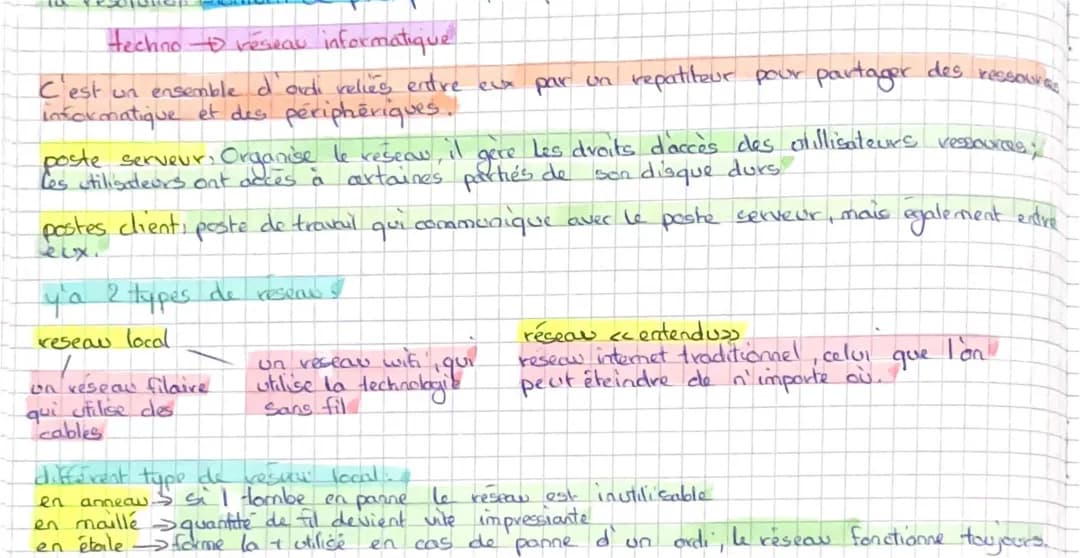 la résolution
techno → réseau informatique
C'est un ensemble d'ordi reliés entre eux par un repatiteur pour partager des ressources
informatique et des périphériques.
poste serveur: Organise le réseau, il gère les droits d'accès des utillisateurs ressources;
Les utilisateurs ont accès à certaines partiés de son disque durs
postes client: poste de travail qui communique avec le poste serveur, mais également entre
eux.
y'a 2 types de réseau
reseau local
réseau <<entendu>>
un réseau filaire
qui utilise des
cables
un reseau wifi, qui
utilise la technologie
sans fil
reseau internet traditionnel, celui que l'on
peut éteindre de n'importe où.
différent type de reseau local:
en anneau → si 1 tombe en panne le réseau est inutilisable
en maillé → quantité de fil devient vite impressiante
en étoile → forme la + utilisé en cas de panne d'un ordi, le réseau fonctionne toujours.